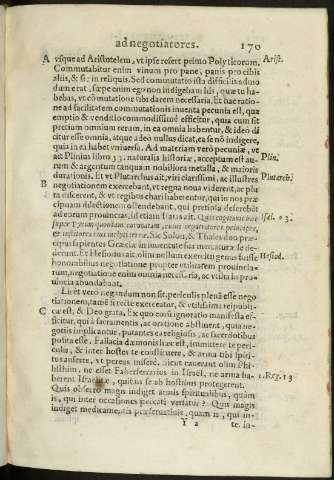 ad negotiatores. 170
A vsque ad Aristotelem, vt ipse refert primo Polyticorum. Arist.
Commutabitur enim vinum pro pane, panis pro cibis
aliis, & sic in reliquis. Sed commutatio ista difficilis admo
dum erat, sæpe enim ego non indigebam his, quæ tu ha-
bebas, vt cõmutatione tibi darem necessaria. Ex hac ratio-
ne ad facilitatem commutationis inuenta pecunia est, qua
emptio & venditio commodissimè efficitur, quia cum sit
pretium omnium rerum, in ea omnia habentur, & ideò di
citur esse omnia, atque adeò nullus dicat, ea se nõ indigere,
quia in ea habet vniuersa. Ad materiam verò pecuniæ, vt
ait Plinius libro 33. naturalis historiæ, acceptum est au- Plin.
rum & argentum tanquam nobiliora metalla, & maioris
durationis. Et vt Plutarchus ait, viri clarissimi, ac illustres Plutarch.
B negotiationem exercebant, vt regna noua viderent, ac plu
ra discerent, & vt regibus chari haberentur, qui in nos præ
cipuam dilectionem ostendebant, qui pretiosa deferebãt
ad eorum prouincias, Id etiam Isaias ait. Isai. 23.
super Tyrum quondam coronatam, cuius negotiatores principes,
Sic Solon, & Thales duo præ-
cipui sapientes Græciæ in iuuentute sua mercaturæ se de-
derunt. Et Hesiodus ait, olim nullum exercitij genus fuisse Hesiod.
honorabilius negotiatione propter vtilitatem prouincia-
rum, negotiatione enim omnia necessaria, ac vtilia in pro-
uincia abundabant.
Licèt verò negandum non sit, periculis plenã esse nego
tiationem, tamẽ si recte exercetur, & vtilissima reipubli-
C cæ est, & Deo grata. Ex quo eius ignoratio manifesta ef-
ficitur, qui à sacramentis, ac oratione abstinent, quia ne-
gotiis implicantur, putantes ea religiosis, ac sacerdotibus
posita esse. Fallacia dæmonis hæc est, immittere te peri-
culis, & inter hostes te constituere, & arma tibi spiri-
tus auferre, vt pereas miserè. sicut cauerant olim Phi-
listhiim, ne esset Faberferrarius in Israël, ne arma ha- 1. Reg. 13
berent Israelitæ, quibus se ab hostibus protegerent.
Quis obsecro magis indiget armis spiritualibus, quàm
is, qui inter occasiones peccati versatur? Quis magis
indiget medicamentis præseruatiuis, quàm is, qui in-
Y 2 te. in-